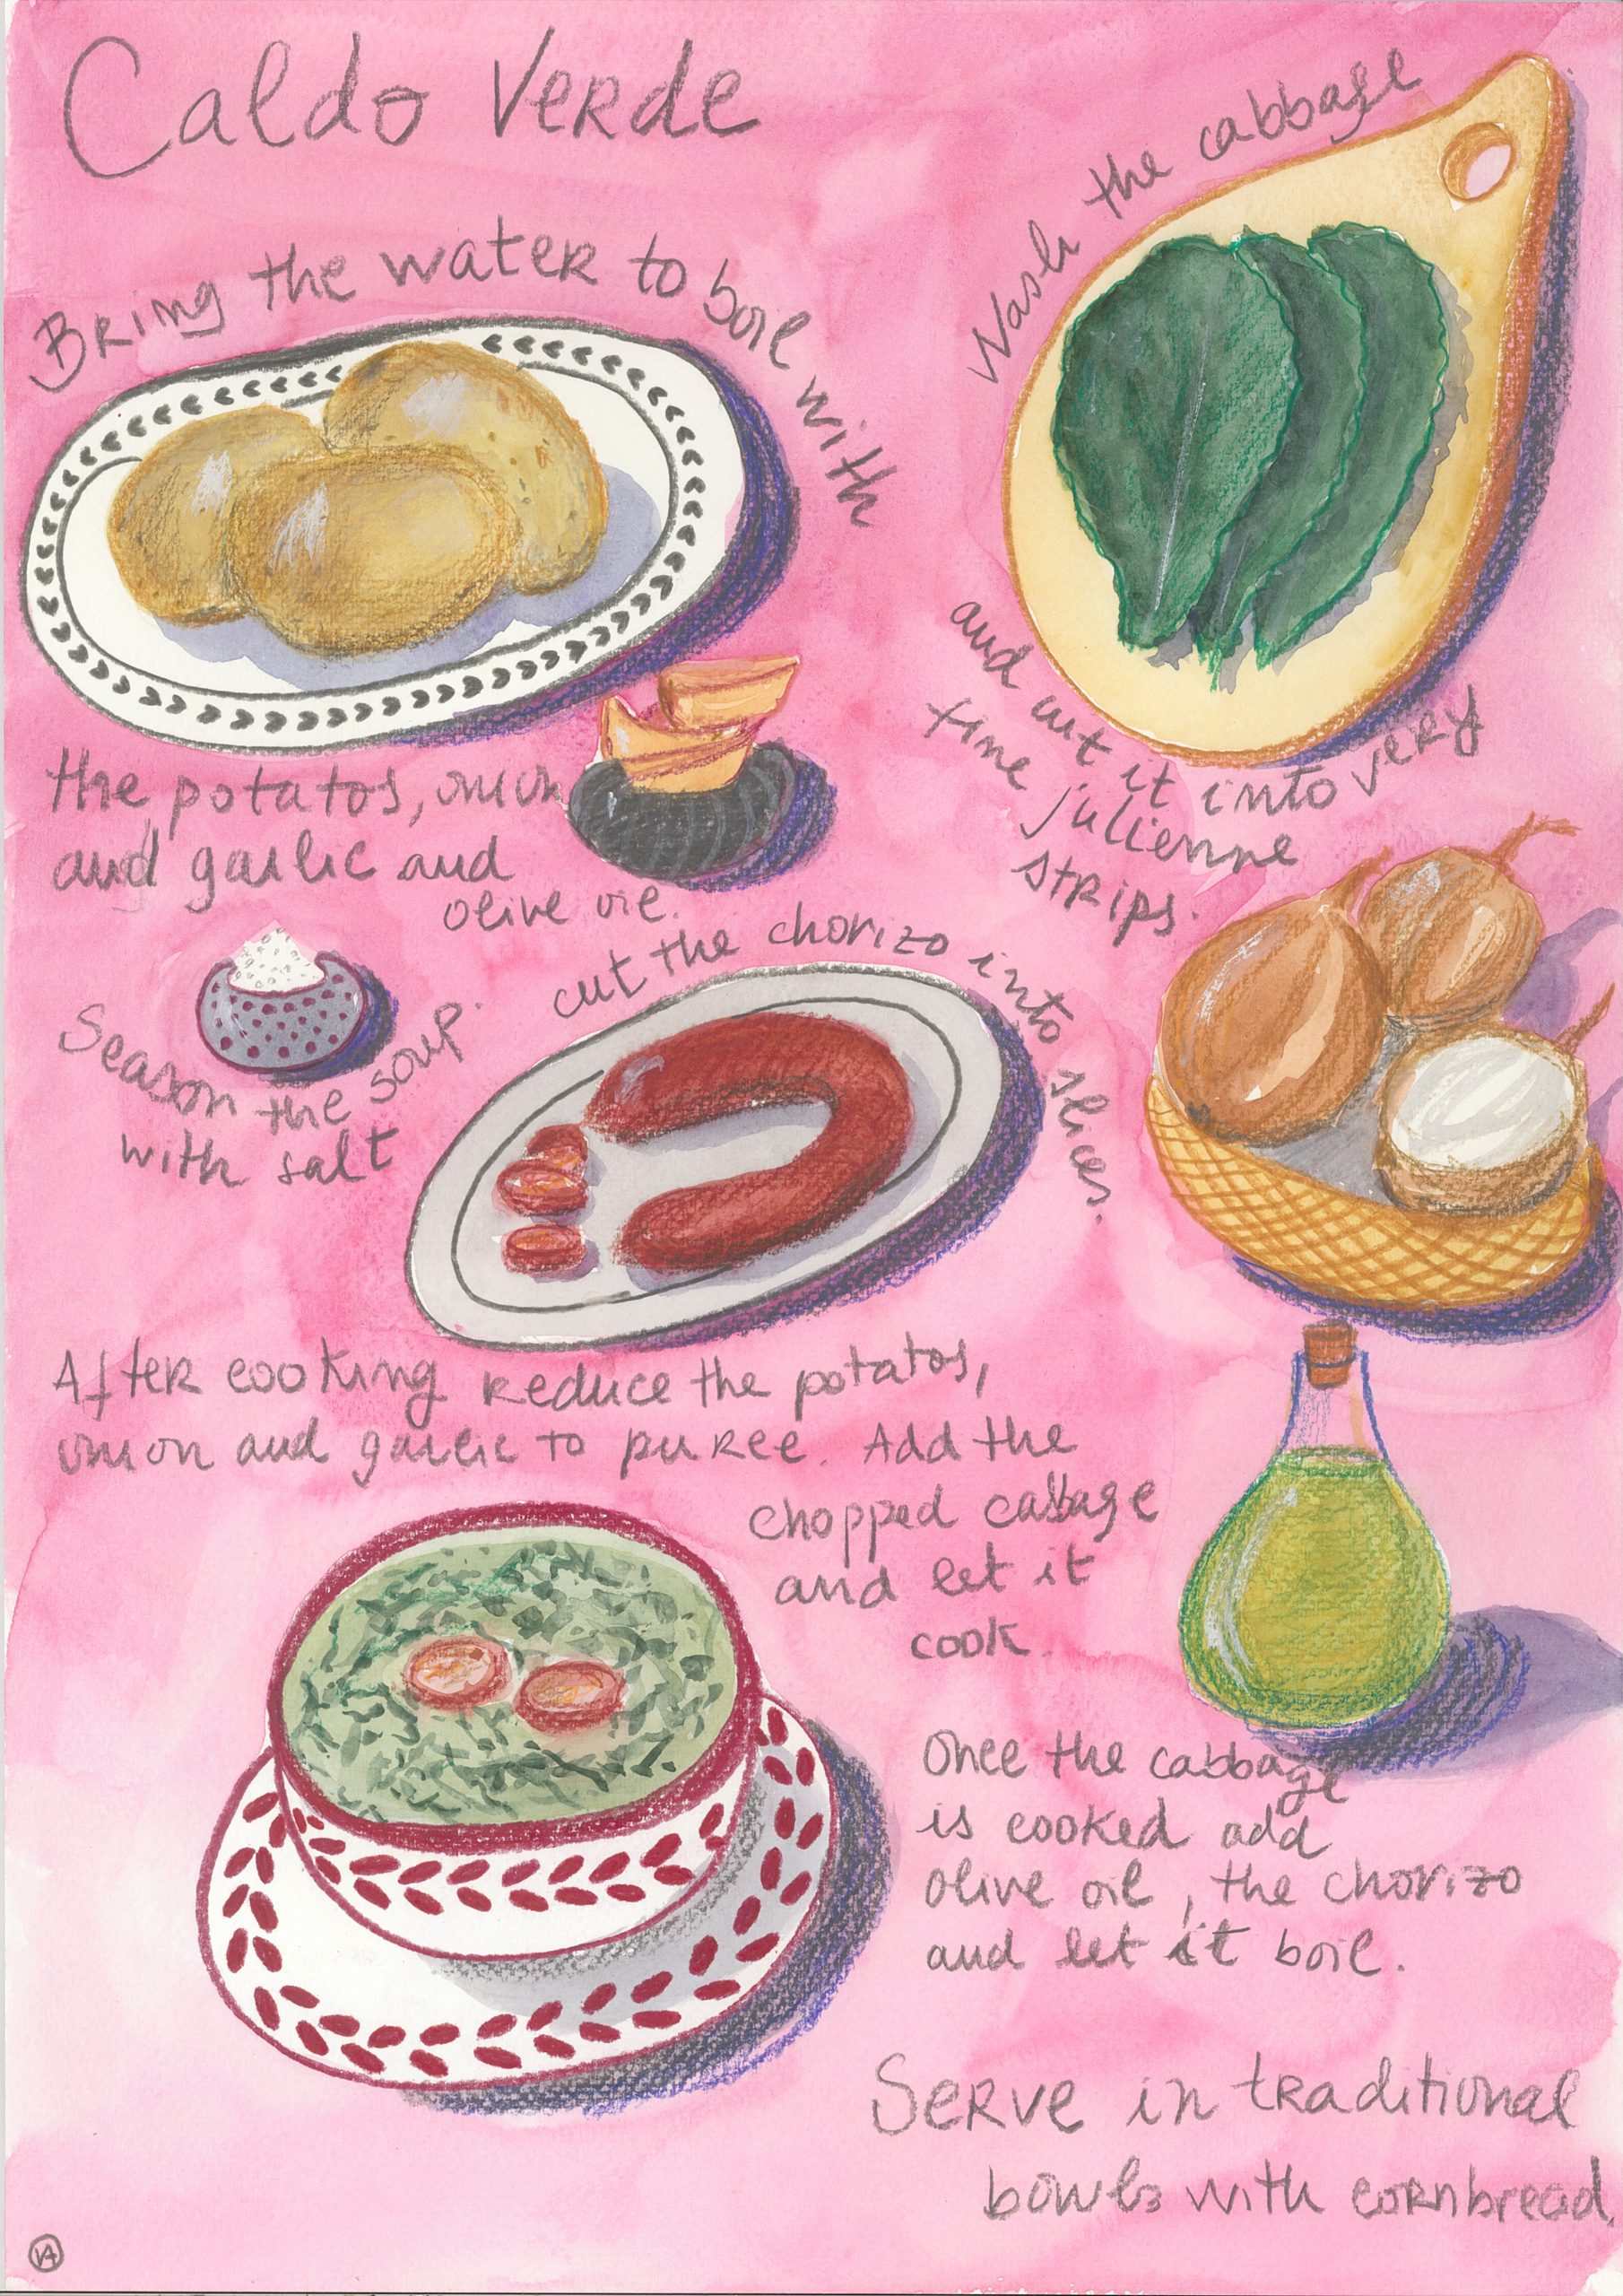 Caldo Verde
Bring the water to boil with
the potatos, onion
and garlic and
olive oil.
Wash the cabbage
and cut it into very
fine julienne
strips.
Season the soup.
with salt
cut the chorizo into slices.
After cooking reduce the potatos,
onion and garlic to puree. Add the
chopped cabbage
and let it
cook.
Once the cabbage
is cooked add
olive oil, the chorizo
and let it boil.
Serve in traditional
bowls with cornbread.